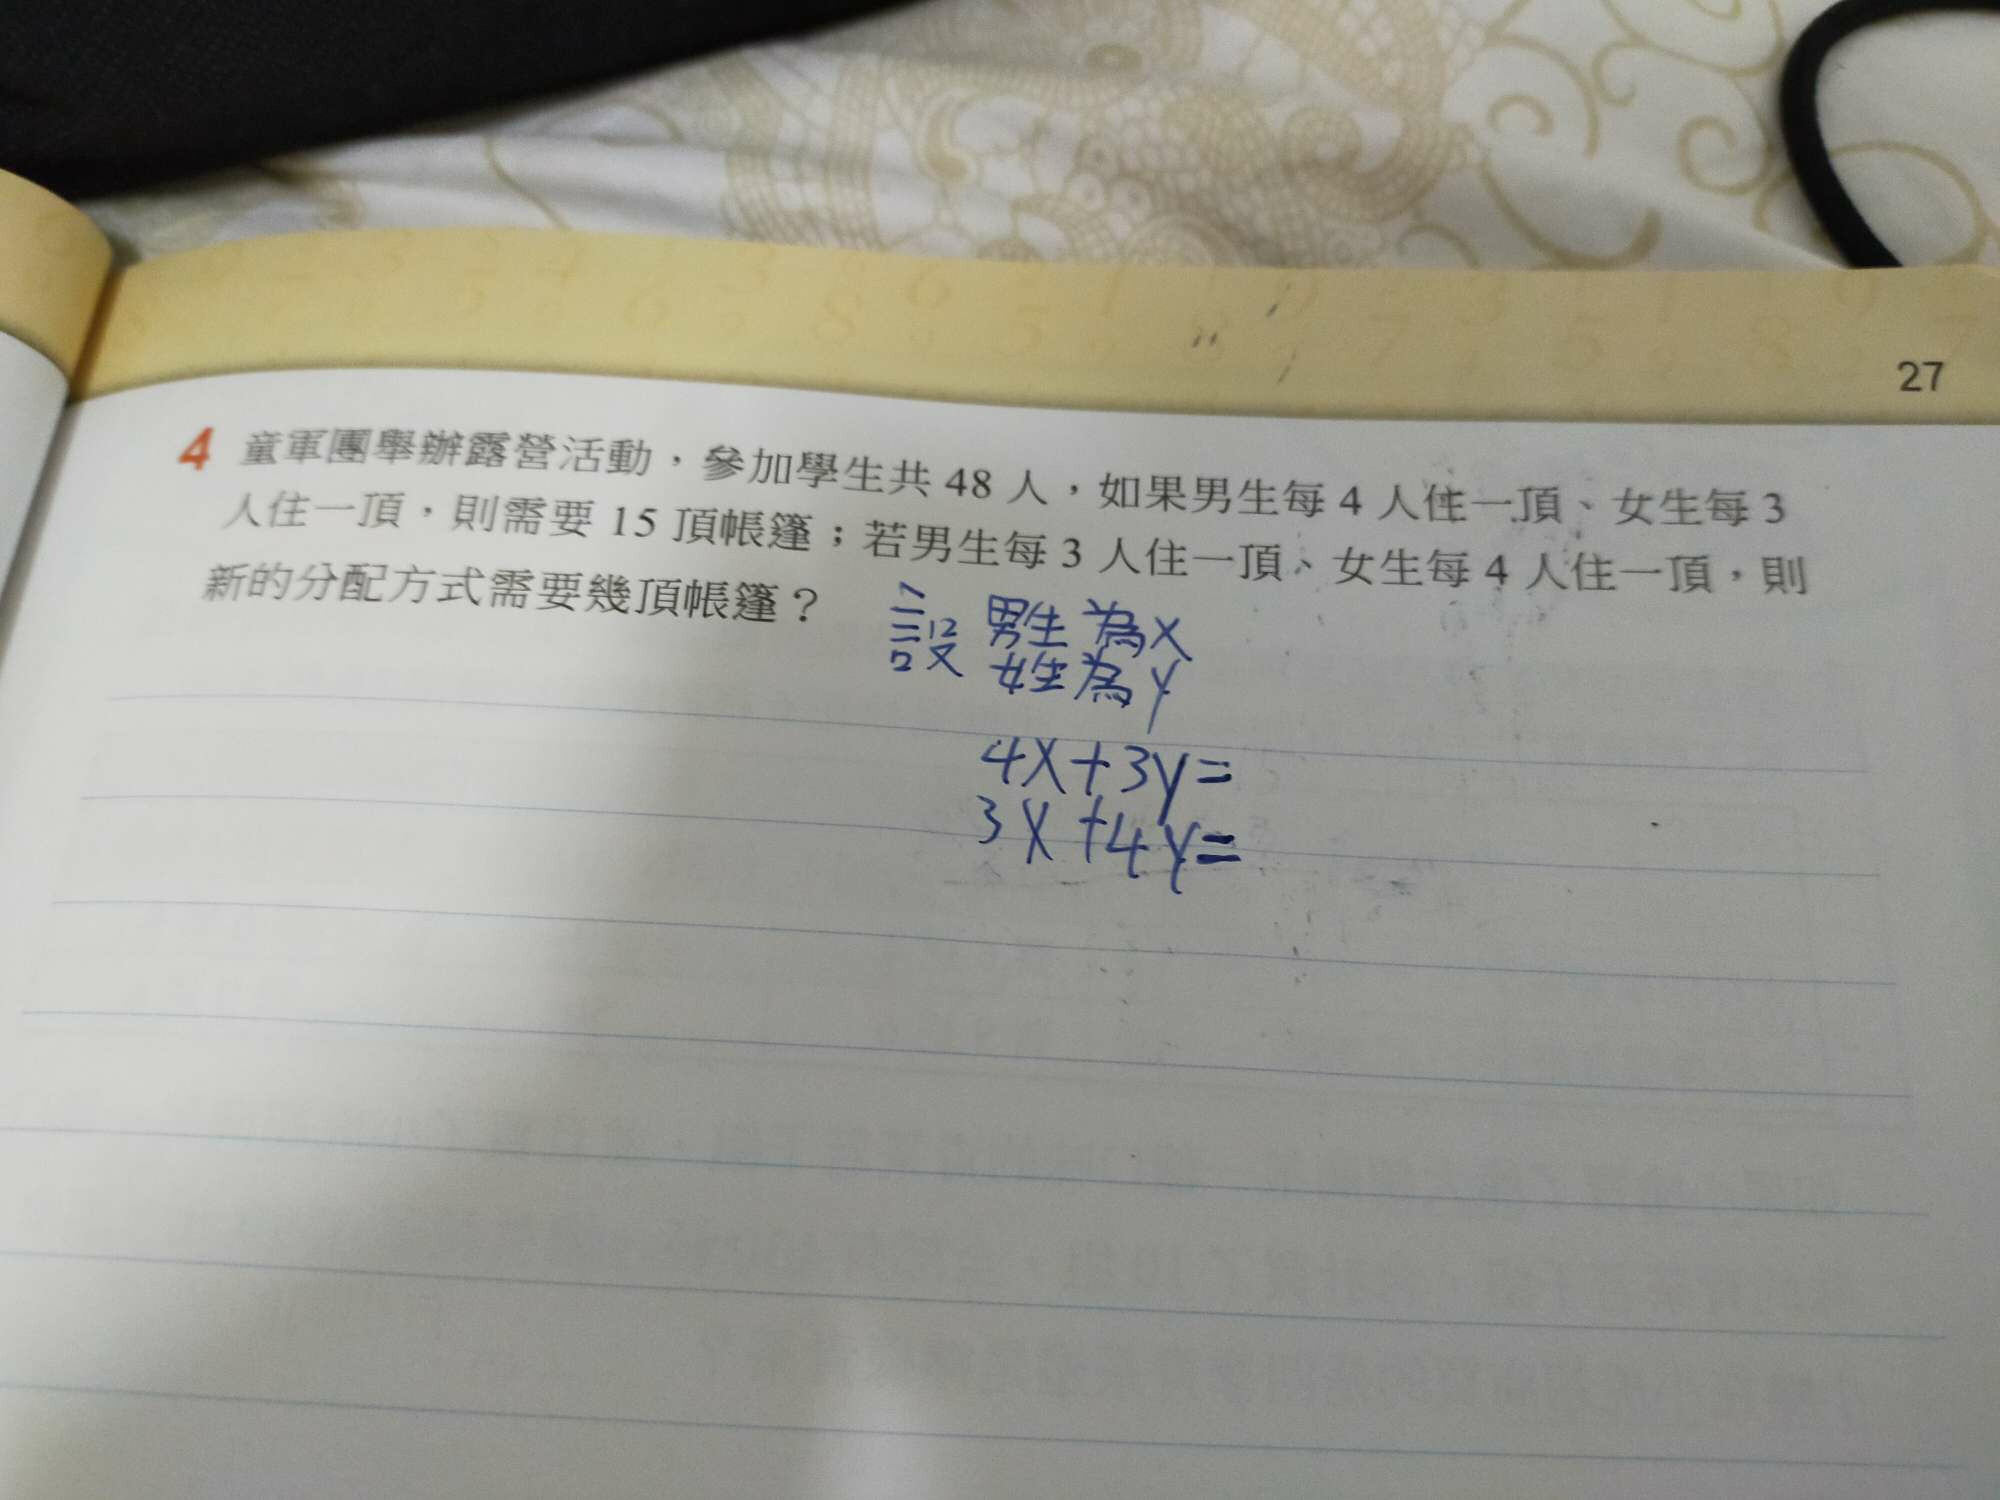 27
4 童軍團舉辦露營活動,參加學生共 48 人,如果男生每 4 人住一頂、女生每 3
人住一頂,則需要 15 頂帳篷;若男生每 3 人住一頂、女生每 4 人住一頂,則
新的分配方式需要幾頂帳篷?
設 男生為X
女生為y
4X+3y=
3X+4y=